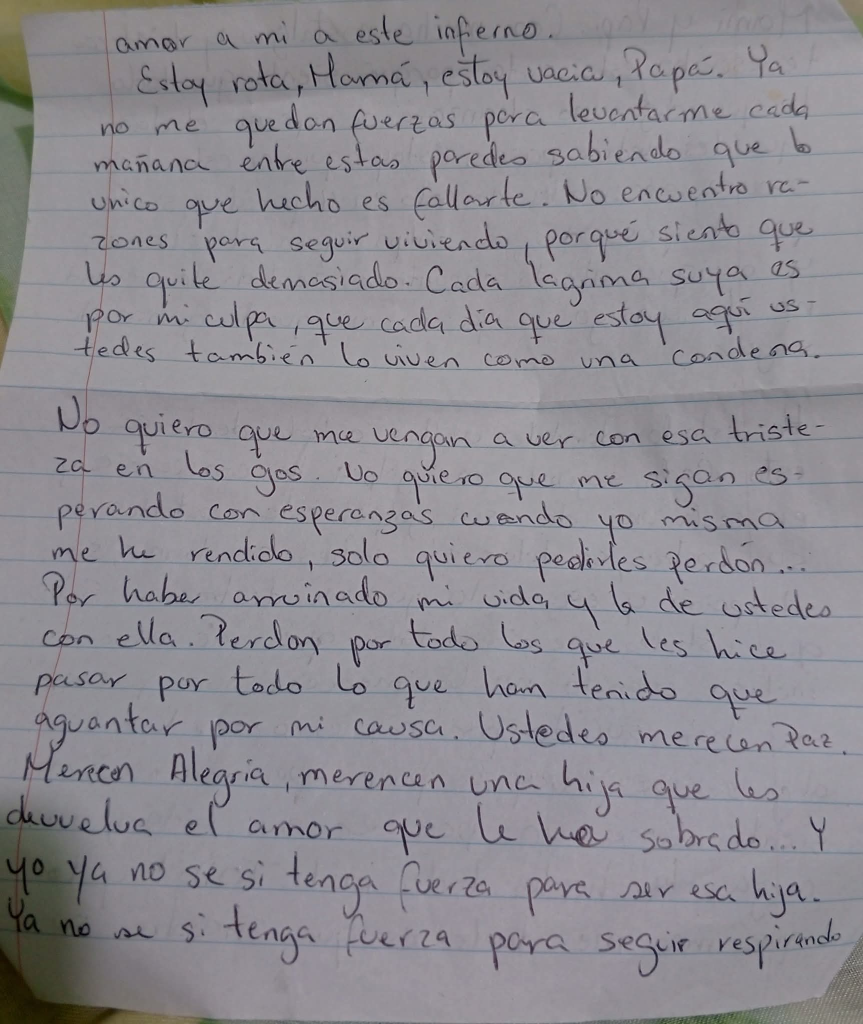 amor a mi a este infierno.
Estoy rota, Mamá, estoy vacia, Papá. Ya
no me quedan fuerzas para levantarme cada
mañana entre estas paredes sabiendo que lo
unico que hecho es fallarte. No encuentro ra-
zones para seguir viviendo, porqué siento que
les quite demasiado. Cada lagrima suya es
por mi culpa, que cada dia que estoy aquí us-
tedes también lo viven como una condena.
No quiero que me vengan a ver con esa triste-
za en los ojos. No quiero que me sigan es-
perando con esperanzas cuando yo misma
me he rendido, solo quiero pedirles perdón...
Por haber arruinado mi vida y la de ustedes
con ella. Perdon por todo los que les hice
pasar por todo lo que han tenido que
aguantar por mi causa. Ustedes merecen Paz.
Merecen Alegria, merencen una hija que les
devuelva el amor que le ha sobrado... Y
yo ya no se si tenga fuerza para ser esa hija.
Ya no se si tenga fuerza para seguir respirando